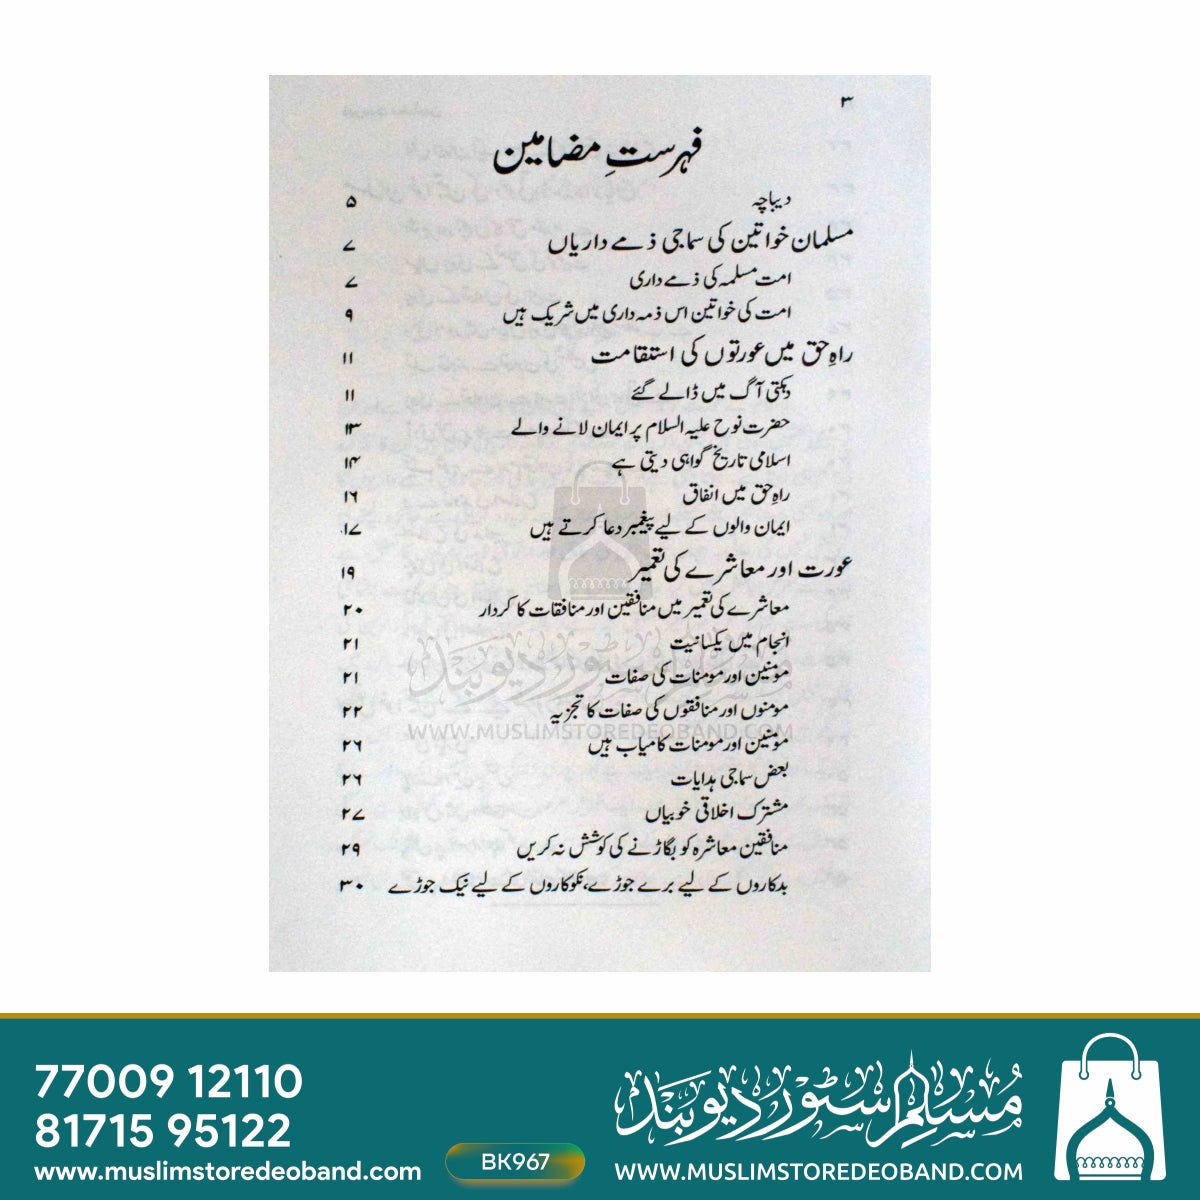 ۳
فہرستِ مضامین
دیباچہ ۵
مسلمان خواتین کی سماجی ذمے داریاں ۷
امت مسلمہ کی ذمے داری ۷
امت کی خواتین اس ذمہ داری میں شریک ہیں ۹
راہِ حق میں عورتوں کی استقامت ۱۱
دہکتی آگ میں ڈالے گئے ۱۱
حضرت نوح علیہ السلام پر ایمان لانے والے ۱۳
اسلامی تاریخ گواہی دیتی ہے ۱۴
راہِ حق میں انفاق ۱۶
ایمان والوں کے لیے پیغمبر دعا کرتے ہیں ۱۷
عورت اور معاشرے کی تعمیر ۱۹
معاشرے کی تعمیر میں منافقین اور منافقات کا کردار ۲۰
انجام میں یکسانیت ۲۱
مومنین اور مومنات کی صفات ۲۱
مومنوں اور منافقوں کی صفات کا تجزیہ ۲۲
مومنین اور مومنات کامیاب ہیں ۲۶
بعض سماجی ہدایات ۲۶
مشترک اخلاقی خوبیاں ۲۷
منافقین معاشرہ کو بگاڑنے کی کوشش نہ کریں ۲۹
بدکاروں کے لیے برے جوڑے، نکوکاروں کے لیے نیک جوڑے ۳۰
مسلم سٹور دیوبند
WWW.MUSLIMSTOREDEOBAND.COM
77009 12110
81715 95122
www.muslimstoredeoband.com
BK967
مسلم سٹور دیوبند
WWW.MUSLIMSTOREDEOBAND.COM